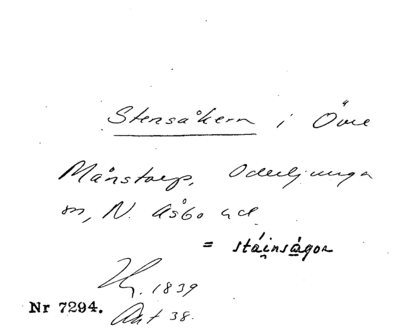 Stensåkern i Övre
Månstorp, Oderljunga
sn, N. Åsbo hd
= stáinságor
1839
Nr 7294. Ant 38.